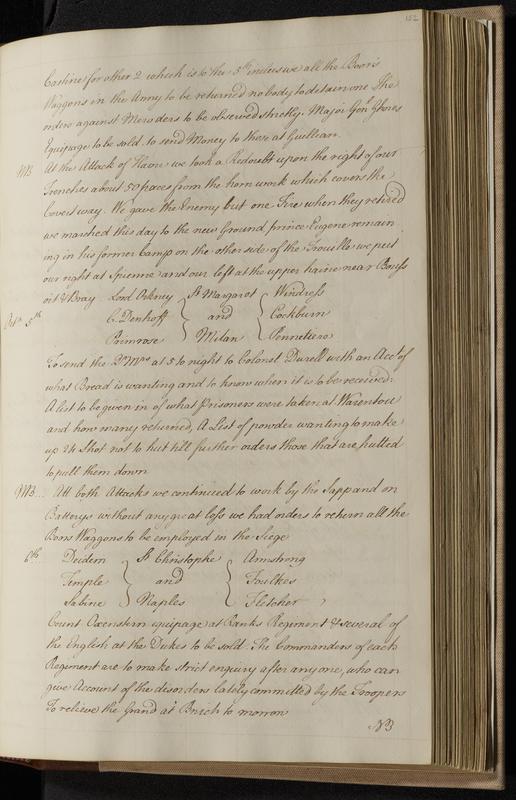 152
Castine for other 2 which is to the 5th inclusive all the Boors
Waggons in the Army to be returned no body to detain one The
orders against Meroders to be observed strictly. Major Genl
Equipage to be sold, to send Money to those at Guillean
NB At the Attack of Havre we took a Redoubt upon the right of our
Trenches about 50 paces from the horn work which covers the
Covert way. We gave the Enemy but one Fire when they retired
we marched this day to the new Ground, prince Eugene remain
ing in his former Camp on the other side of the Trouille we put
our right at Spienne and our left at the upper haine near Bouss
oit & Bray Lord Orkney St Margaret Windress
Octr 5th C. Denhoff and Cockburn
Primrose Milan Pennetiere
To send the Qr Mrs at 5 to night to Colonel Durell with an Acct of
what Bread is wanting and to know when it is to be received.
A list to be given in of what Prisoners were taken at Warentou
and how many returned, A List of powder wanting to make
up 24 Shot not to hut till further orders those that are hutted
to pull them down
NB. Att both Attacks we continued to work by the Sapp and on
Batterys without any great loss we had orders to return all the
Bors Waggons to be employed in the Siege
6th Deidem St Christophe Armstrong
Temple and Foulkes
Sabine Naples Fletcher
Count Oxenstern equipage at Ranks Regiment & several of
the English at the Dukes to be sold. The Commanders of each
Regiment are to make strict enquiry after any one, who can
give Account of the disorders lately committed by the Troopers
To relieve the Grand at to morrow
NB